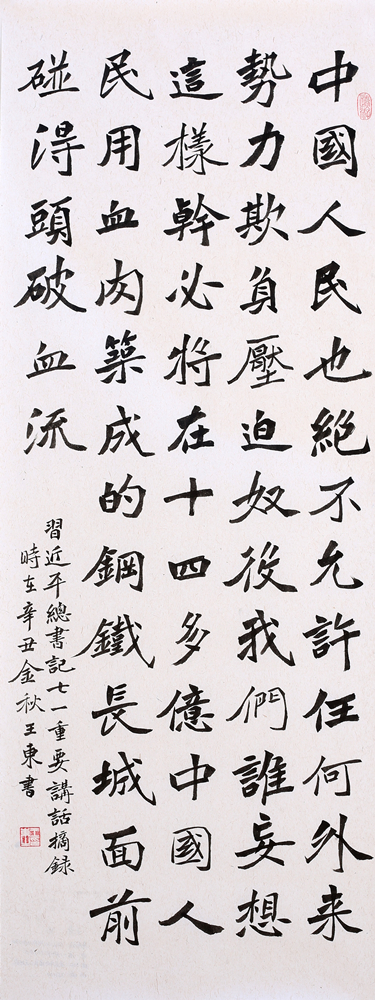 中國人民也絕不允許任何外来
勢力欺負壓迫奴役我們誰妄想
這樣幹必將在十四多億中國人
民用血肉築成的鋼鐵長城面前
碰得頭破血流
習近平總書記七一重要講話摘録
時在辛丑金秋王東書